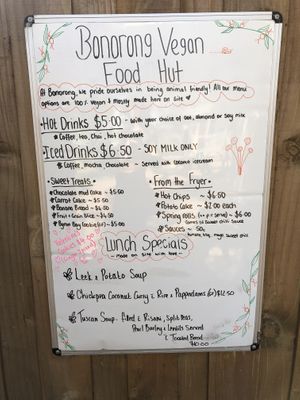 Bonorong Vegan
Food Hut
At Bonorong, we pride ourselves in being animal friendly! All our menu
options are 100% vegan & mostly made here on site
• Hot Drinks $5.00 - with your choice of oat, almond or soy milk
* Coffee, tea, chai, hot chocolate
• Iced Drinks $6.50 - SOY MILK ONLY
* Coffee, mocha, chocolate ~ Served with coconut icecream
• Sweet Treats •
* Chocolate Mud Cake ~ $5.50
* Carrot Cake ~ $5.50
* Banana Bread ~ $6.50
* Fruit + Grain Slice ~ $4.50
* Byron Bay Cookie (GF) ~ $5.00
• From the Fryer •
* Hot Chips ~ $6.50
* Potato Cake ~ $2.00 each
* Spring rolls ~ $6.00
Comes w/ Sweet Chilli Sauce
* Sauces ~ 50c
tomato, bbq, mayo, sweet chilli
Lunch Specials
~ made on site with love ~
Leek & Potato Soup
Chickpea Coconut Curry & Rice & Pappadams (GF) $12.50
Tuscan Soup - filled & Risoni, Split Peas,
Pearl Barley & Lentils Served
& Toasted Bread
$10.00